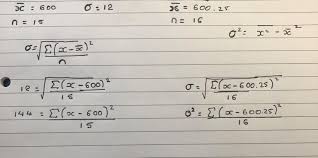 x̄ = 600 σ = 12 x̄ = 600.25
n = 15 n = 16
σ² = x̄² - x̄²
σ = √(Σ(x-x̄)²/n)
12 = √(Σ(x-600)²/15) σ = √(Σ(x-600.25)²/16)
144 = Σ(x-600)²/15 σ² = Σ(x-600.25)²/16